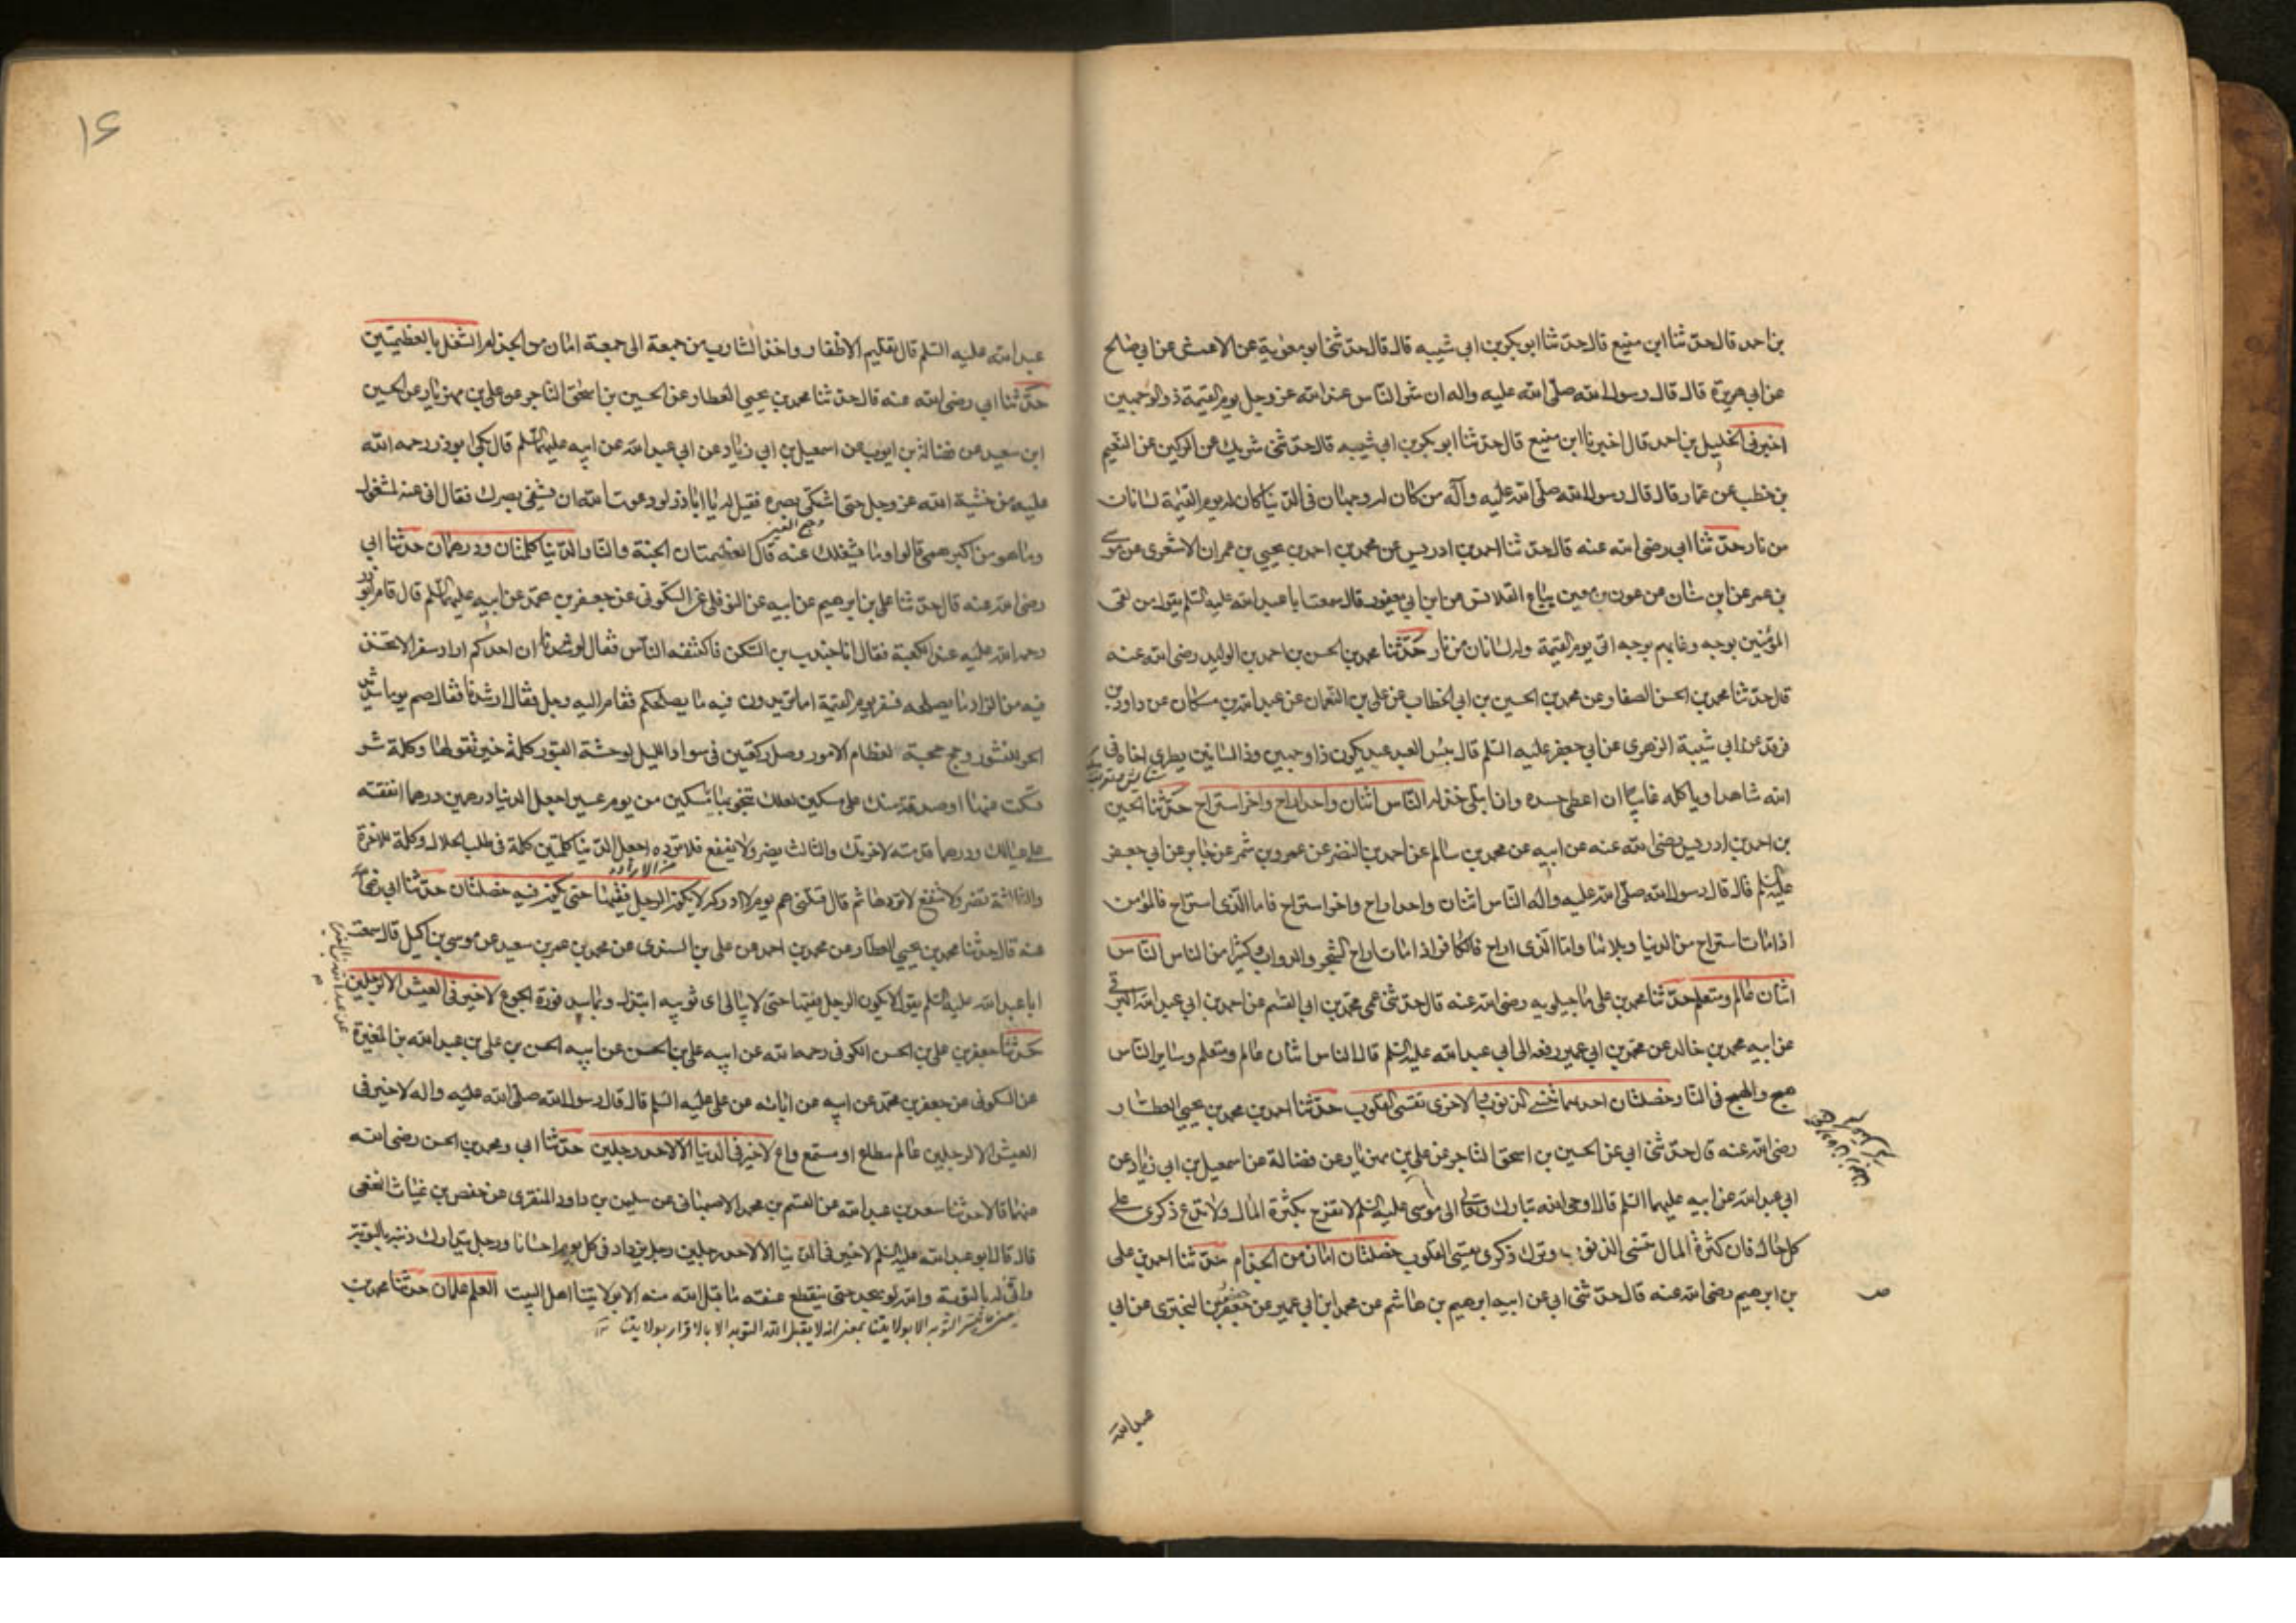 بن احمد قال حدثنا ابن منيع قال حدثنا ابو بكر بن ابي شيبه قال قال حدثني ابو معوية عن الاعمش عن ابي صالح
عن ابي هريرة قال قال رسول الله صلى الله عليه واله ان شر الناس عند الله عز وجل يوم القيمة ذو الوجهين
اخبرني الخليل بن احمد قال اخبرنا ابن منيع قال حدثنا ابو بكر بن ابي شيبه قال حدثني شريك عن الركين عن النعيم
بن حنظب عن عمار قال قال رسول الله صلى الله عليه وآله من كان له وجهان في الدنيا كان له يوم القيمة لسانان
من نار حدثنا ابي رضي الله عنه قال حدثنا احمد بن ادريس عن محمد بن احمد بن يحيى بن عمران الاشعرى عن موسى
بن عمر عن ابن سنان عن عون بن معين بياع القلانس عن ابن ابي يعفور قال سمعت ابا عبد الله عليه السلم يقول من لقى
المؤمنين بوجه وغابهم بوجه اتى يوم القيمة وله لسانان من نار حدثنا محمد بن الحسن بن احمد بن الوليد رضي الله عنه
قال حدثنا محمد بن الحسن الصفار عن محمد بن الحسين بن ابي الخطاب عن علي بن النعمان عن عبد الله بن مسكان عن داود بن
فرقد عن ابي شيبة الزهرى عن ابي جعفر عليه السلم قال بئس العبد عبد يكون ذا وجهين وذا لسانين يطرى اخاه في
الله شاهدا وياكله غايبا ان اعطى حسده وان ابتلى خذله الناس اثنان واحد اراح واخر استراح حدثنا الحسين
بن احمد بن ادريس رضي الله عنه عن ابيه عن محمد بن سالم عن احمد بن النضر عن عمرو بن شمر عن جابر عن ابي جعفر
عليه السلم قال قال رسول الله صلى الله عليه واله الناس اثنان واحد اراح واخر استراح فاما الذى استراح فالمؤمن
اذا مات استراح من الدنيا وبلائها واما الذى اراح فالكافر اذا مات اراح الشجر والدواب وكثيرا من الناس الناس
اثنان عالم ومتعلم حدثنا محمد بن علي ماجيلويه رضي الله عنه قال حدثني عمى محمد بن ابي القسم عن احمد بن ابي عبد الله البرقى
عن ابيه محمد بن خالد عن محمد بن ابي عمير رفعه الى ابي عبد الله عليه السلم قال الناس اثنان عالم ومتعلم وساير الناس
همج والهمج في النار خصلتان احديهما تنسى الذنوب والاخرى تقسى القلوب حدثنا احمد بن محمد بن يحيى العطار
رضي الله عنه قال حدثني ابي عن الحسين بن اسحق التاجر عن علي بن مهزيار عن فضالة عن اسمعيل بن ابي زياد عن
ابي عبد الله عن ابيه عليهما السلم قال اوحى الله تبارك وتعالى الى موسى عليه السلم لا تفرح بكثرة المال ولا تدع ذكرى على
كل حال فان كثرة المال تنسى الذنوب وترك ذكرى يقسى القلوب خصلتان امان من الجذام حدثنا احمد بن علي
بن ابرهيم رضي الله عنه قال حدثني ابي عن ابيه ابرهيم بن هاشم عن محمد ابن ابي عمير عن حفص بن البخترى عن ابي
عبد الله
١٤
عبد الله عليه السلم قال تقليم الاظفار واخذ الشارب من جمعة الى جمعة امان من الجذام الشغل بالعظيمتين
حدثنا ابي رضي الله عنه قال حدثنا محمد بن يحيى العطار عن الحسين بن اسحق التاجر عن علي بن مهزيار عن الحسين
ابن سعيد عن فضالة بن ايوب عن اسمعيل بن ابي زياد عن ابي عبد الله عن ابيه عليهما السلم قال بكى ابو ذر رحمه الله
عليه من خشية الله عز وجل حتى اشتكى بصره فقيل له يا ابا ذر لو دعوت الله ان يشفى بصرك فقال انى عنه لمشغول
وما هو من اكبر همى قالوا وما يشغلك عنه قال العظيمتان الجنة والنار الدنيا كلمتان ودرهمان حدثنا ابي
رضي الله عنه قال حدثنا علي بن ابرهيم عن ابيه عن النوفلى عن السكونى عن جعفر بن محمد عن ابيه عليهما السلم قال قام ابو ذر
رحمه الله عليه عند الكعبة فقال انا جندب بن السكن فاكتنفه الناس فقال لو ان احدكم اراد سفرا لاتخذ
فيه من الزاد ما يصلحه فسفر يوم القيمة اما تريدون فيه ما يصلحكم فقام اليه رجل فقال ارشدنا فقال صم يوما شديد
الحر للنشور وحج حجة لعظام الامور وصل ركعتين في سواد الليل لوحشة القبور كلمة خير تقولها وكلمة شر
تسكت عنها او صدقة منك على مسكين لعلك تنجو بها يا مسكين من يوم عسير اجعل الدنيا درهمين درهما انفقته
على عيالك ودرهما قدمته لاخرتك والثالث يضر ولا ينفع فلا ترده اجعل الدنيا كلمتين كلمة في طلب الحلال وكلمة للاخرة
والثالثة تضر ولا تنفع لا تردها ثم قال قتلنى هم يوم لا ادركه لا يكون الرجل فقيها حتى يكون فيه خصلتان حدثنا ابي رضي الله
عنه قال حدثنا محمد بن يحيى العطار عن محمد بن احمد عن علي بن السندى عن محمد بن عمر بن سعيد عن موسى بن اكيل قال سمعت
ابا عبد الله عليه السلم يقول لا يكون الرجل فقيها حتى لا يبالى اى ثوبيه ابتذل وبما سد فورة الجوع لا خير في العيش الا لرجلين
حدثنا جعفر بن علي بن الحسن الكوفى رحمه الله عن ابيه علي بن الحسن عن ابيه الحسن بن علي بن عبد الله بن المغيرة
عن السكونى عن جعفر بن محمد عن ابيه عن ابائه عن علي عليه السلم قال قال رسول الله صلى الله عليه واله لا خير في
العيش الا لرجلين عالم مطاع او مستمع واع لا خير في الدنيا الا لاحد رجلين حدثنا ابي ومحمد بن الحسن رضي الله
عنهما قالا حدثنا سعد بن عبد الله عن القسم بن محمد الاصبهانى عن سليمن بن داود المنقرى عن حفص بن غياث النخعى
قال قال ابو عبد الله عليه السلم لا خير في الدنيا الا لاحد رجلين رجل يزداد في كل يوم احسانا ورجل يتدارك ذنبه بالتوبة
وانى له بالتوبة والله لو سجد حتى ينقطع عنقه ما قبل الله منه الا بولايتنا اهل البيت العلم علمان حدثنا محمد بن
التوبة الا بولايتنا بمعنى انه لا يقبل الله التوبه الا بالاقرار بولايتنا